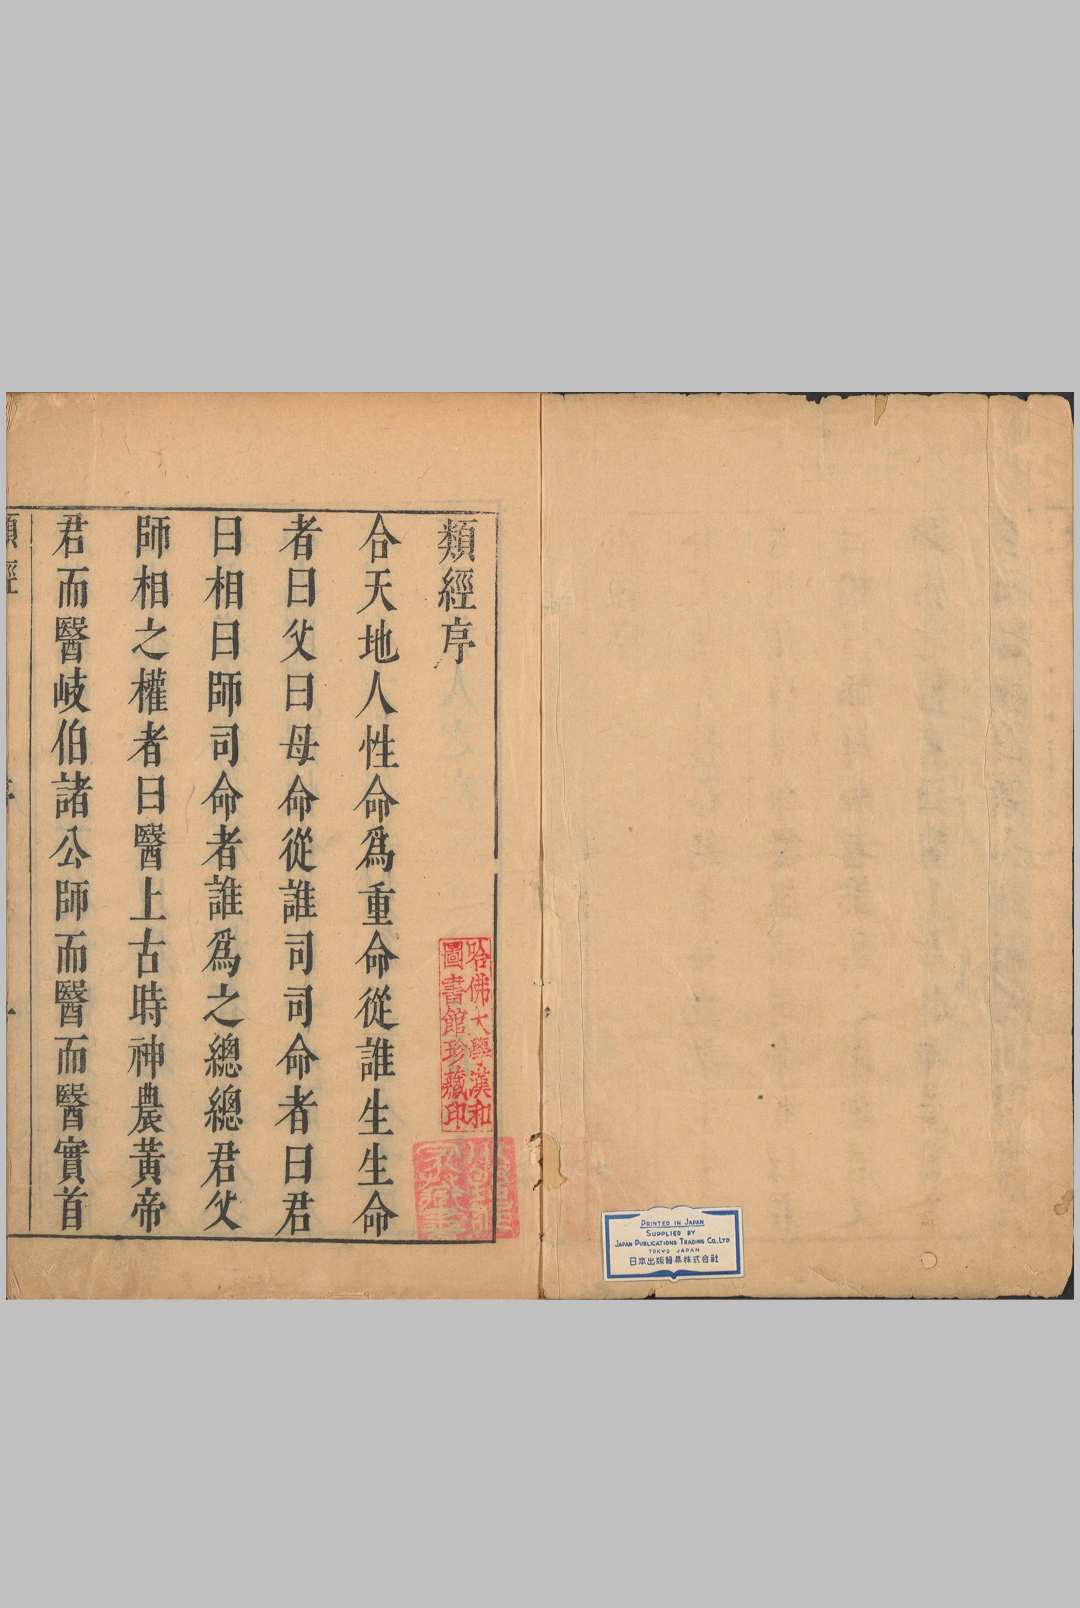 PRINTED IN JAPAN
SUPPLIED BY
JAPAN PUBLICATIONS TRADING CO., LTD
TOKYO JAPAN
日本出版貿易株式会社
類經序
合天地人性命爲重命從誰生生命
者曰父曰母命從誰司司命者曰君
曰相曰師司命者誰爲之總總君父
師相之權者曰醫上古時神農黃帝
君而醫岐伯諸公師而醫而醫實首
類經
序
一
哈佛大學漢和
圖書館珍藏印